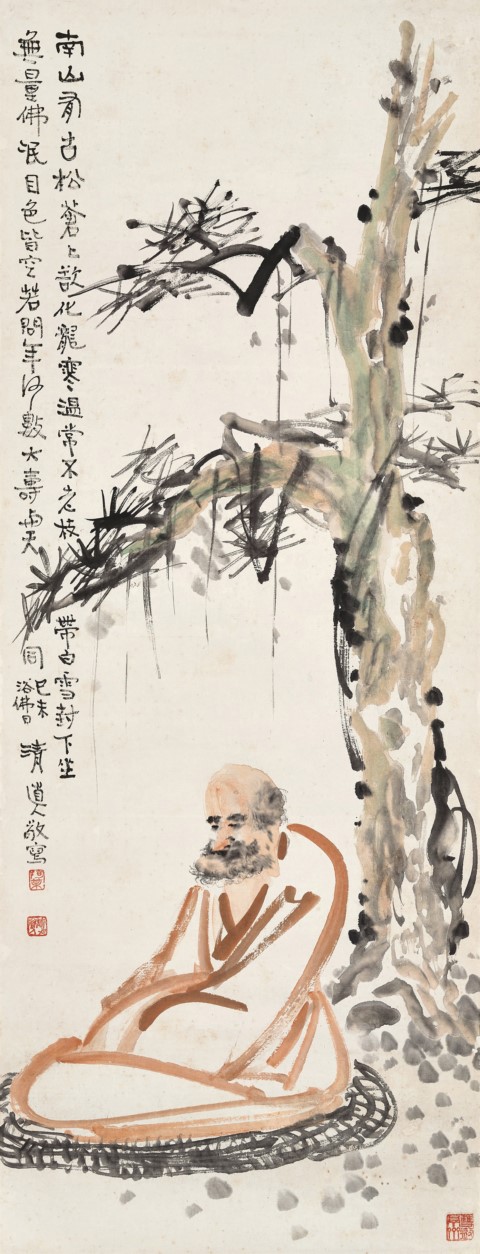 南山有古松蒼〻欲化龍寒溫常不老枝帶白雪封下坐
無量佛泯目色皆空若問年何數大壽與天同
己未
浴佛日
清道人敬寫